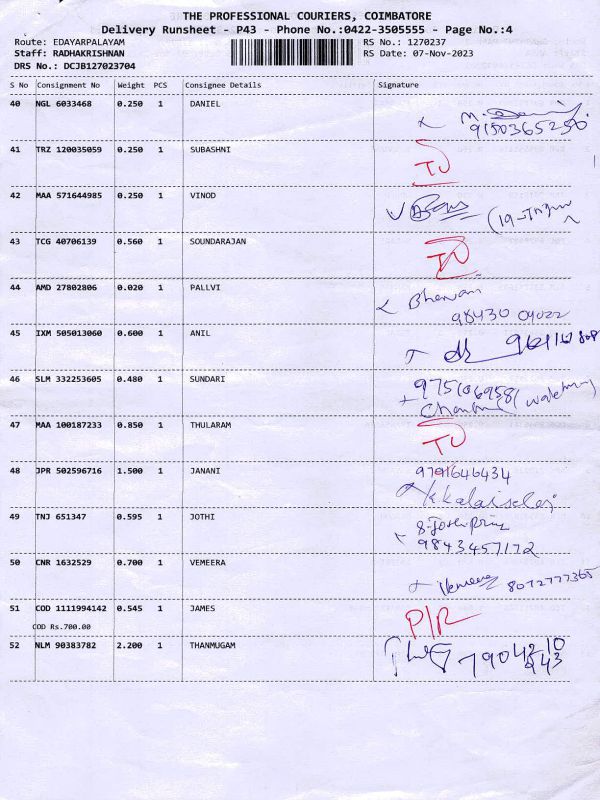 THE PROFESSIONAL COURIERS, COIMBATORE
Delivery Runsheet - P43 - Phone No.:0422-3505555 - Page No.:4
Route: EDAYARPALAYAM RS No.: 1270237
Staff: RADHAKRISHNAN RS Date: 07-Nov-2023
DRS No.: DCJB127023704
S No Consignment No Weight PCS Consignee Details Signature
40 NGL 6033468 0.250 1 DANIEL
41 TRZ 120035059 0.250 1 SUBASHNI
42 MAA 571644985 0.250 1 VINOD
43 TCG 40706139 0.560 1 SOUNDARAJAN
44 AMD 27802806 0.020 1 PALLVI
98430 04022
45 IXM 505013060 0.600 1 ANIL
46 SLM 332253605 0.480 1 SUNDARI
47 MAA 100187233 0.850 1 THULARAM
48 JPR 502596716 1.500 1 JANANI 9791646434
Kkalaiselvi
49 TNJ 651347 0.595 1 JOTHI
9843457172
50 CNR 1632529 0.700 1 VEMEERA
Vemeera 8072777365
51 COD 1111994142 0.545 1 JAMES P/R
COD Rs.700.00
52 NLM 90383782 2.200 1 THANMUGAM